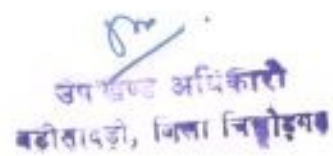 उप खण्ड अधिकारी
बड़ीसादड़ी, जिला चित्तोड़गढ़